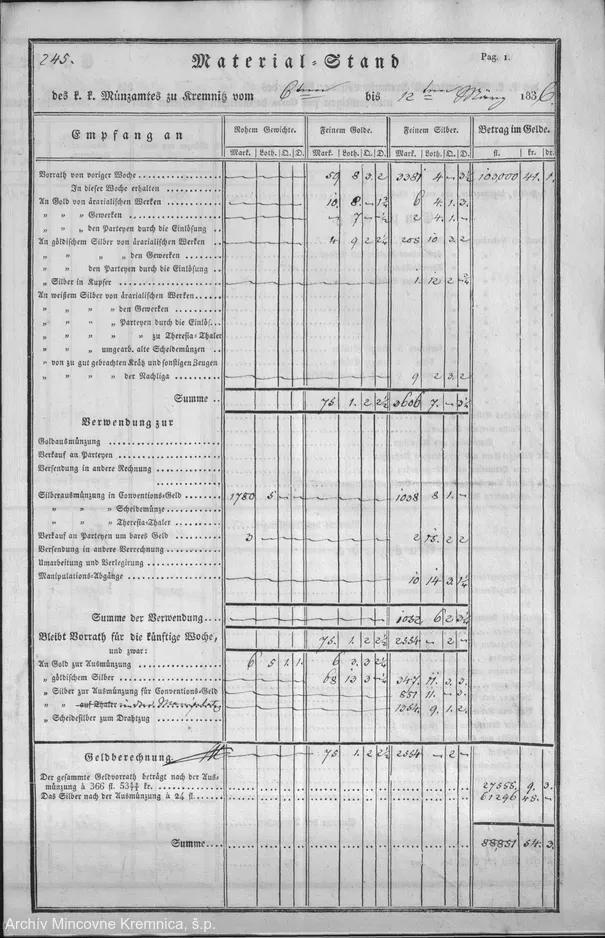 245.
Material-Stand
Pag. 1.
des k. k. Münzamtes zu Kremnitz vom 6ten bis 12ten März 1836.
Empfang an
Rohem Gewichte. Feinem Golde. Feinem Silber. Betrag im Gelde.
Mark. Loth. Q. D. Mark. Loth. Q. D. Mark. Loth. Q. D. fl. kr. dr.
Vorrath von voriger Woche 59 8 3. 2 3381 4 3½ 100,000 41. 1.
In dieser Woche erhalten
An Gold von ärarialischen Werken 10. 8. 1½ 6 4. 1. 3
„ „ „ Gewerken 7 ½ 2 4. 1.
„ „ „ den Parteyen durch die Einlösung
An göldischem Silber von ärarialischen Werken 4 9 2 2½ 208 10 3. 2
„ „ „ „ den Gewerken
„ „ „ den Parteyen durch die Einlösung
„ Silber in Kupfer 1 12 2
An weißem Silber von ärarialischen Werken
„ „ „ „ den Gewerken
„ „ „ „ Parteyen durch die Einlös.
„ „ „ „ zu Theresia-Thaler
„ „ „ umgearb. alte Scheidemünzen
„ von zu gut gebrachten Krätz und sonstigen Zeugen
„ „ „ der Nachliga 9 2 3. 2
Summe 75 1. 2 2½ 3606 7. 3½
Verwendung zur
Goldausmünzung
Verkauf an Parteyen
Versendung in andere Rechnung
Silberausmünzung in Conventions-Geld 1780 5 1038 8 1.
„ „ Scheidemünze
„ „ Theresia-Thaler
Verkauf an Parteyen um bares Geld 3 2 15. 2 2
Versendung in andere Verrechnung
Umarbeitung und Verlegirung
Manipulations-Abgänge 10 14 3 1½
Summe der Verwendung 1052 6 2 3½
Bleibt Vorrath für die künftige Woche, 75. 1. 2 2½ 2554 2
und zwar:
An Gold zur Ausmünzung 6 5 1. 1. 6 3. 3 2½
„ göldischem Silber 68 13 3 347. 11. 3. 3.
„ Silber zur Ausmünzung für Conventions-Geld 851 11. 3
„ „ auf Thaler in der Manipulation 1354 9. 1. 2
„ Scheidesilber zum Drahtzug
Geldberechnung 75 1. 2 2½ 2554 2
Der gesammte Goldvorrath beträgt nach der Aus-
münzung à 366 fl. kr. 27555. 9. 3.
Das Silber nach der Ausmünzung à 24 fl. 61296 45.
Summe 88,851 54. 3.
Archív Mincovne Kremnica, š.p.